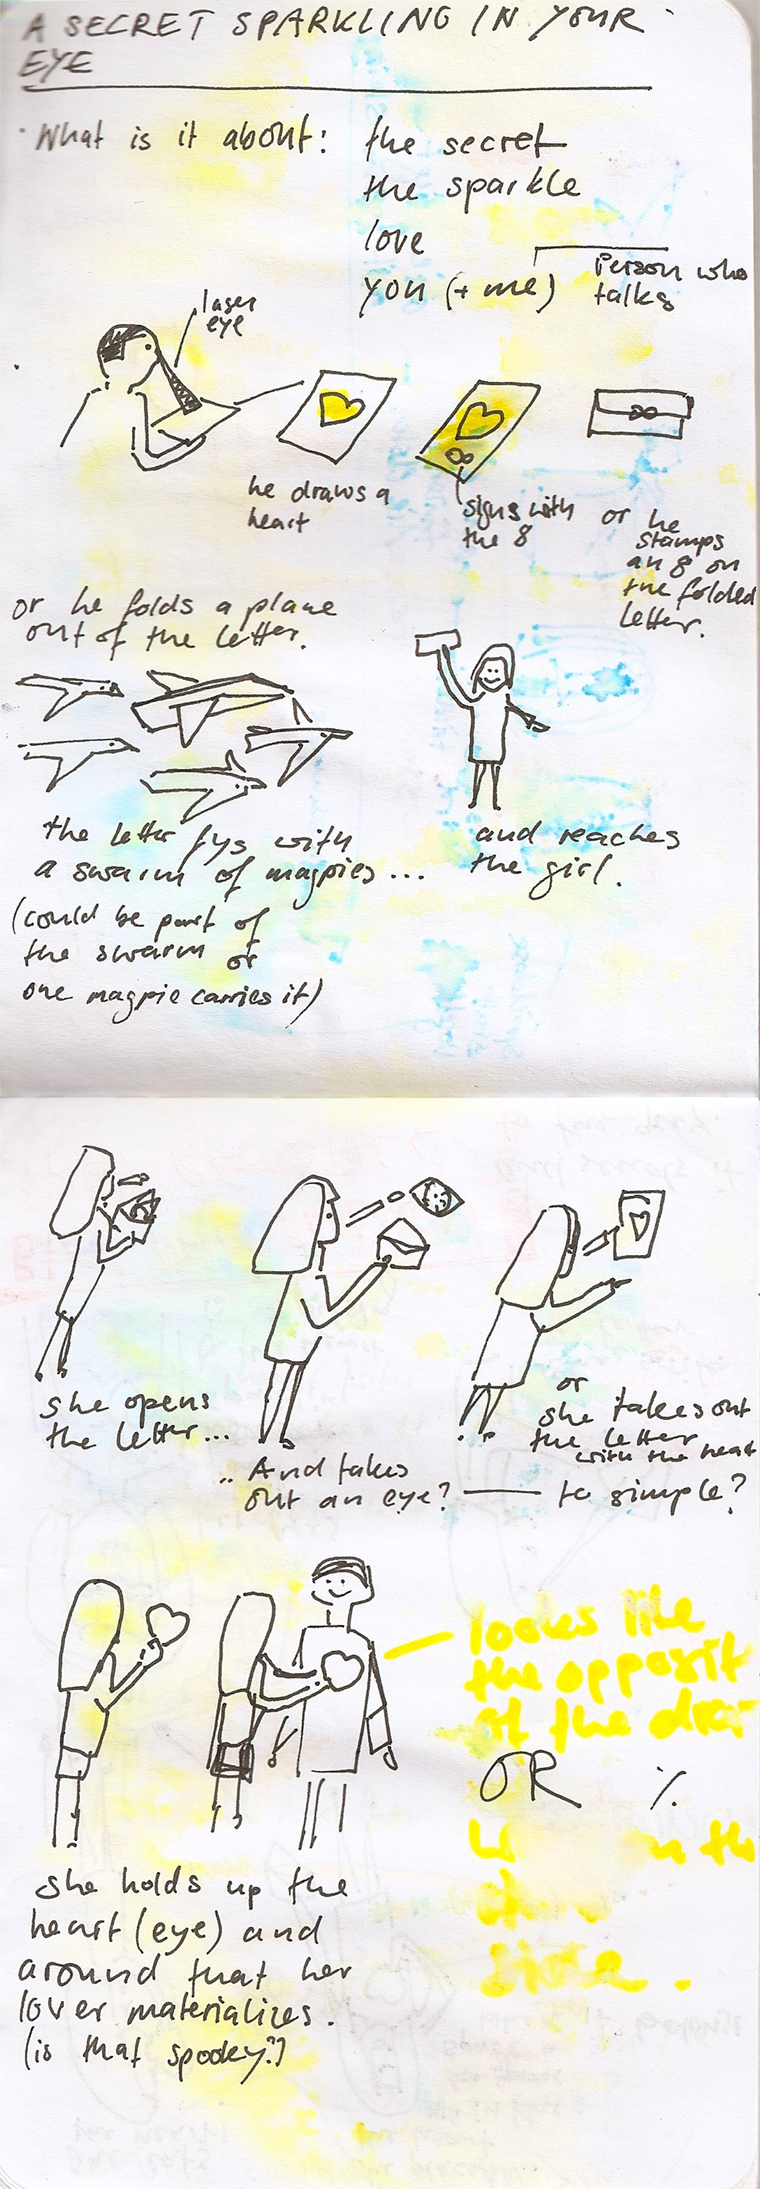 A SECRET SPARKLING IN YOUR
EYE
What is it about:
the secret
the sparkle
love
you (+ me)
Person who
talks
laser
eye
he draws a
heart
signs with
the 8
or he
stamps
an 8 on
the folded
letter.
or he folds a plane
out of the letter.
the letter fys with
a swarm of magpies ...
(could be part of
the swarm or
one magpie carries it)
and reaches
the girl.
she opens
the letter...
.. And takes
out an eye?
or
she takes out
the letter
with the heart
to simple?
looks like
the opposit
of the
OR %
she holds up the
heart (eye) and
around that her
lover materializes.
(is that spooky?)